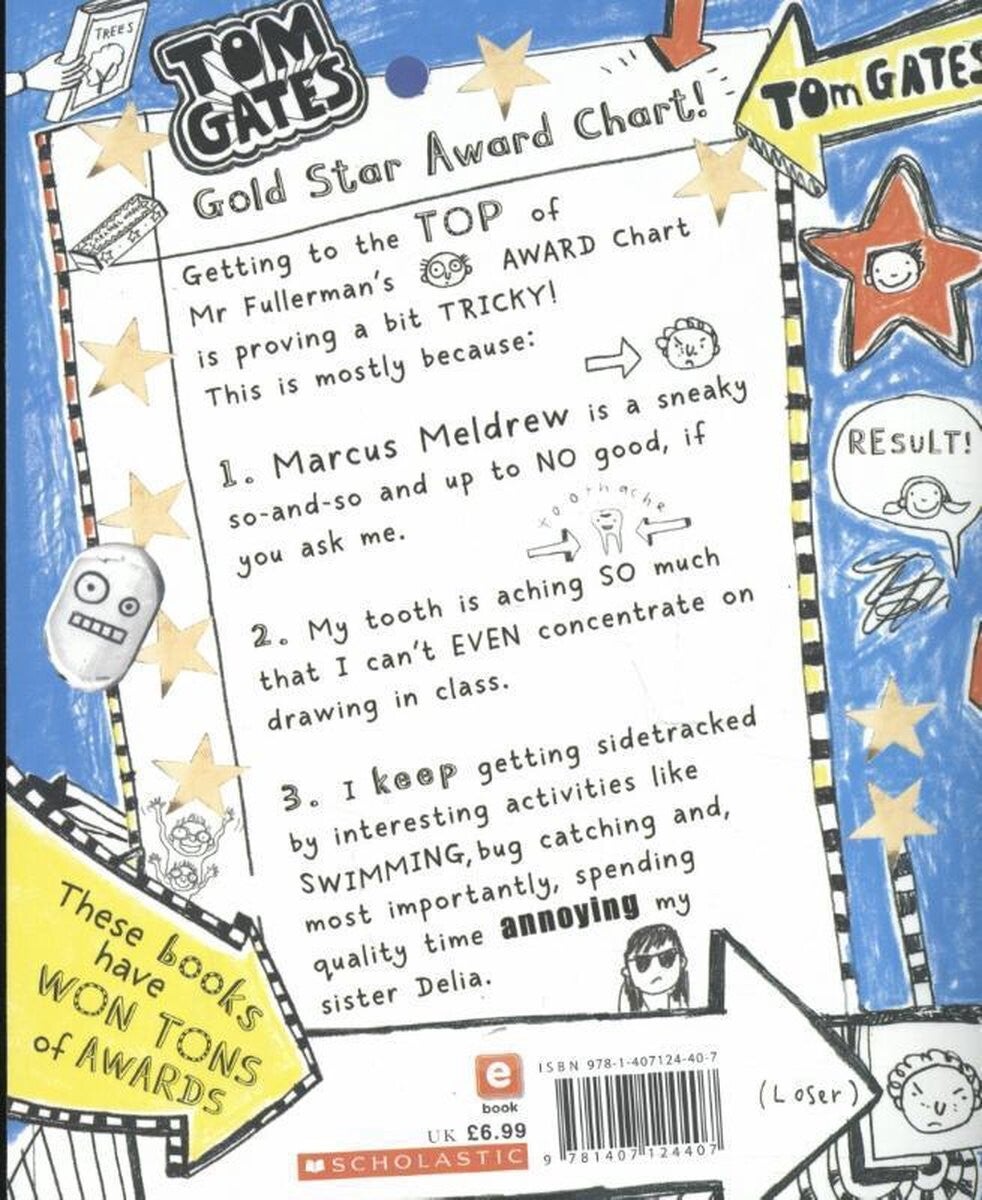 TREES
TOM
GATES
TOM GATES
Gold Star Award Chart!
Getting to the TOP of
Mr Fullerman's AWARD Chart
is proving a bit TRICKY!
This is mostly because:
1. Marcus Meldrew is a sneaky
so-and-so and up to NO good, if
you ask me.
toothache
2. My tooth is aching SO much
that I can't EVEN concentrate on
drawing in class.
3. I keep getting sidetracked
by interesting activities like
SWIMMING, bug catching and,
most importantly, spending
quality time annoying my
sister Delia.
RESULT!
These books
have
WON TONS
of AWARDS
e
book
UK £6.99
SCHOLASTIC
ISBN 978-1-407124-40-7
9 781407 124407
(Loser)